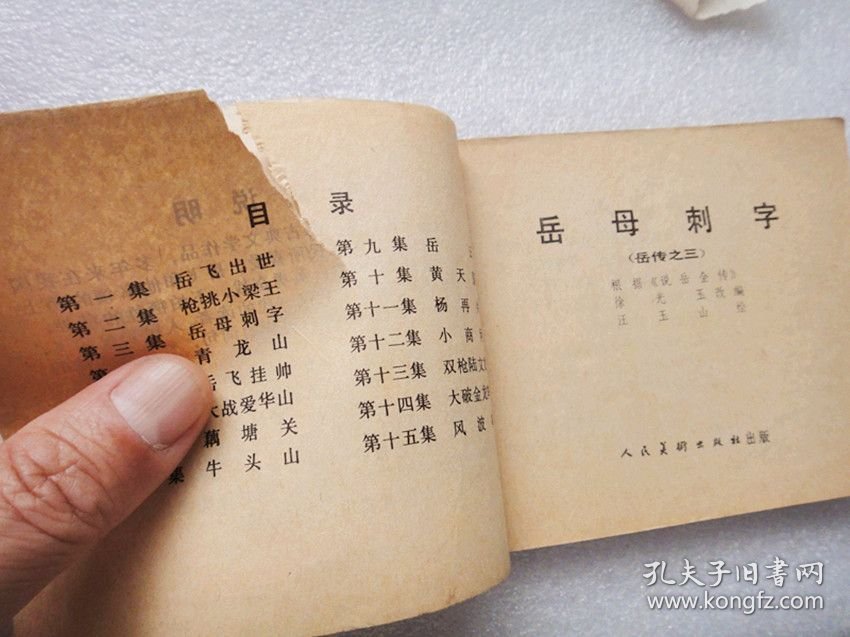 目录
第一集 岳飞出世
第二集 枪挑小梁王
第三集 岳母刺字
第 青龙山
岳飞挂帅
大战爱华山
藕塘关
集 牛头山
第九集 岳
第十集 黄天
第十一集 杨再
第十二集 小商
第十三集 双枪陆文
第十四集 大破金龙
第十五集 风波
岳母刺字
(岳传之三)
根据《说岳全传》
徐光玉改编
汪玉山绘
人民美术出版社出版
孔夫子旧书网
www.kongfz.com